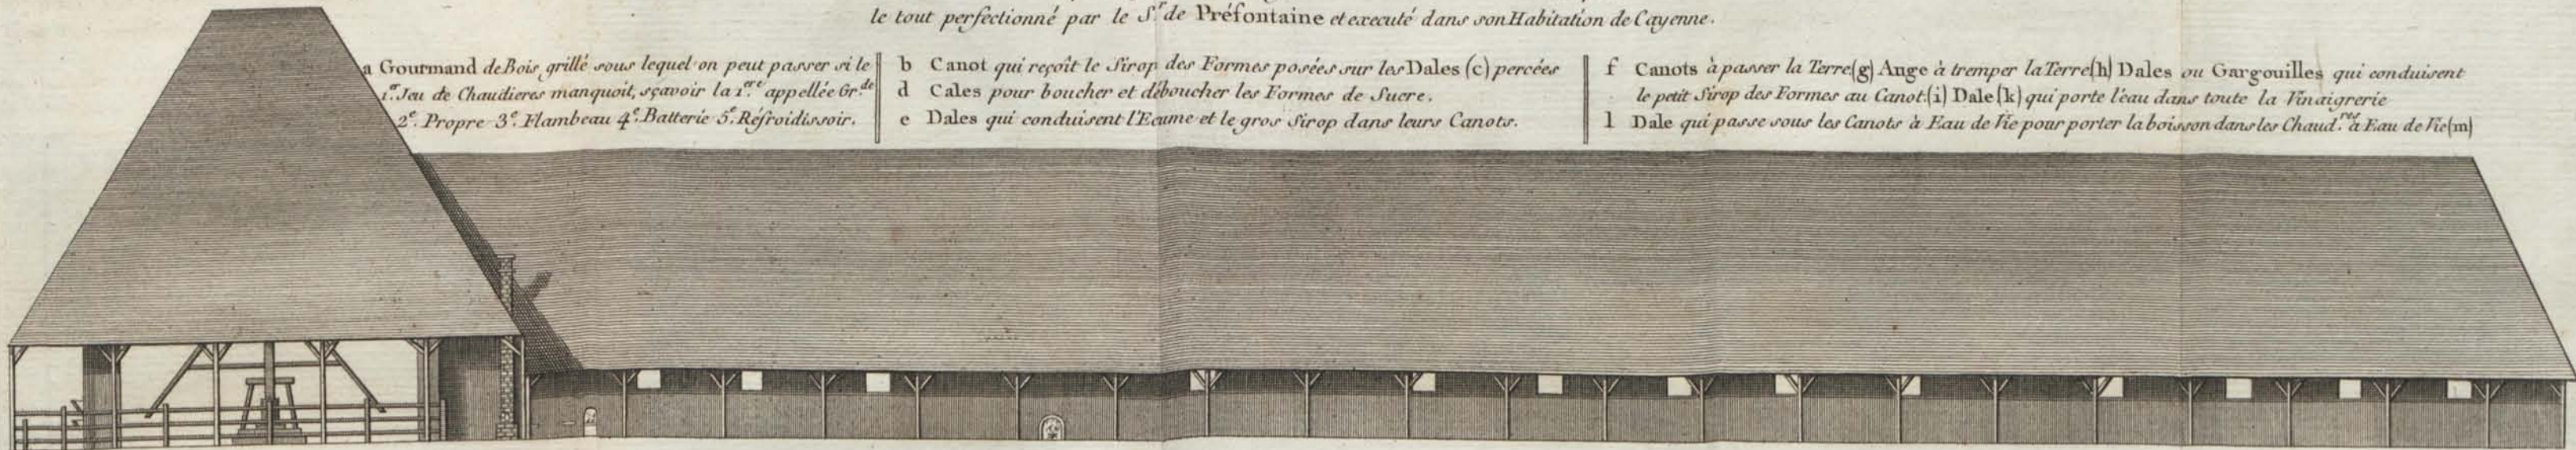 le tout perfectionné par le S.r de Préfontaine et executé dans son Habitation de Cayenne.
a Gourmand de Bois grillé sous lequel on peut passer si le
1.er Jeu de Chaudieres manquoit, sçavoir la 1.ere appellée Gr.de
2.e Propre 3.e Flambeau 4.e Batterie 5.e Réfroidissoir.
b Canot qui reçoit le Sirop des Formes posées sur les Dales (c) percées
d Cales pour boucher et déboucher les Formes de Sucre.
e Dales qui conduisent l'Ecume et le gros Sirop dans leurs Canots.
f Canots à passer la Terre (g) Ange à tremper la Terre (h) Dales ou Gargouilles qui conduisent
le petit Sirop des Formes au Canot. (i) Dale (k) qui porte l'eau dans toute la Vinaigrerie
l Dale qui passe sous les Canots à Eau de Vie pour porter la boisson dans les Chaud.res à Eau de Vie (m)